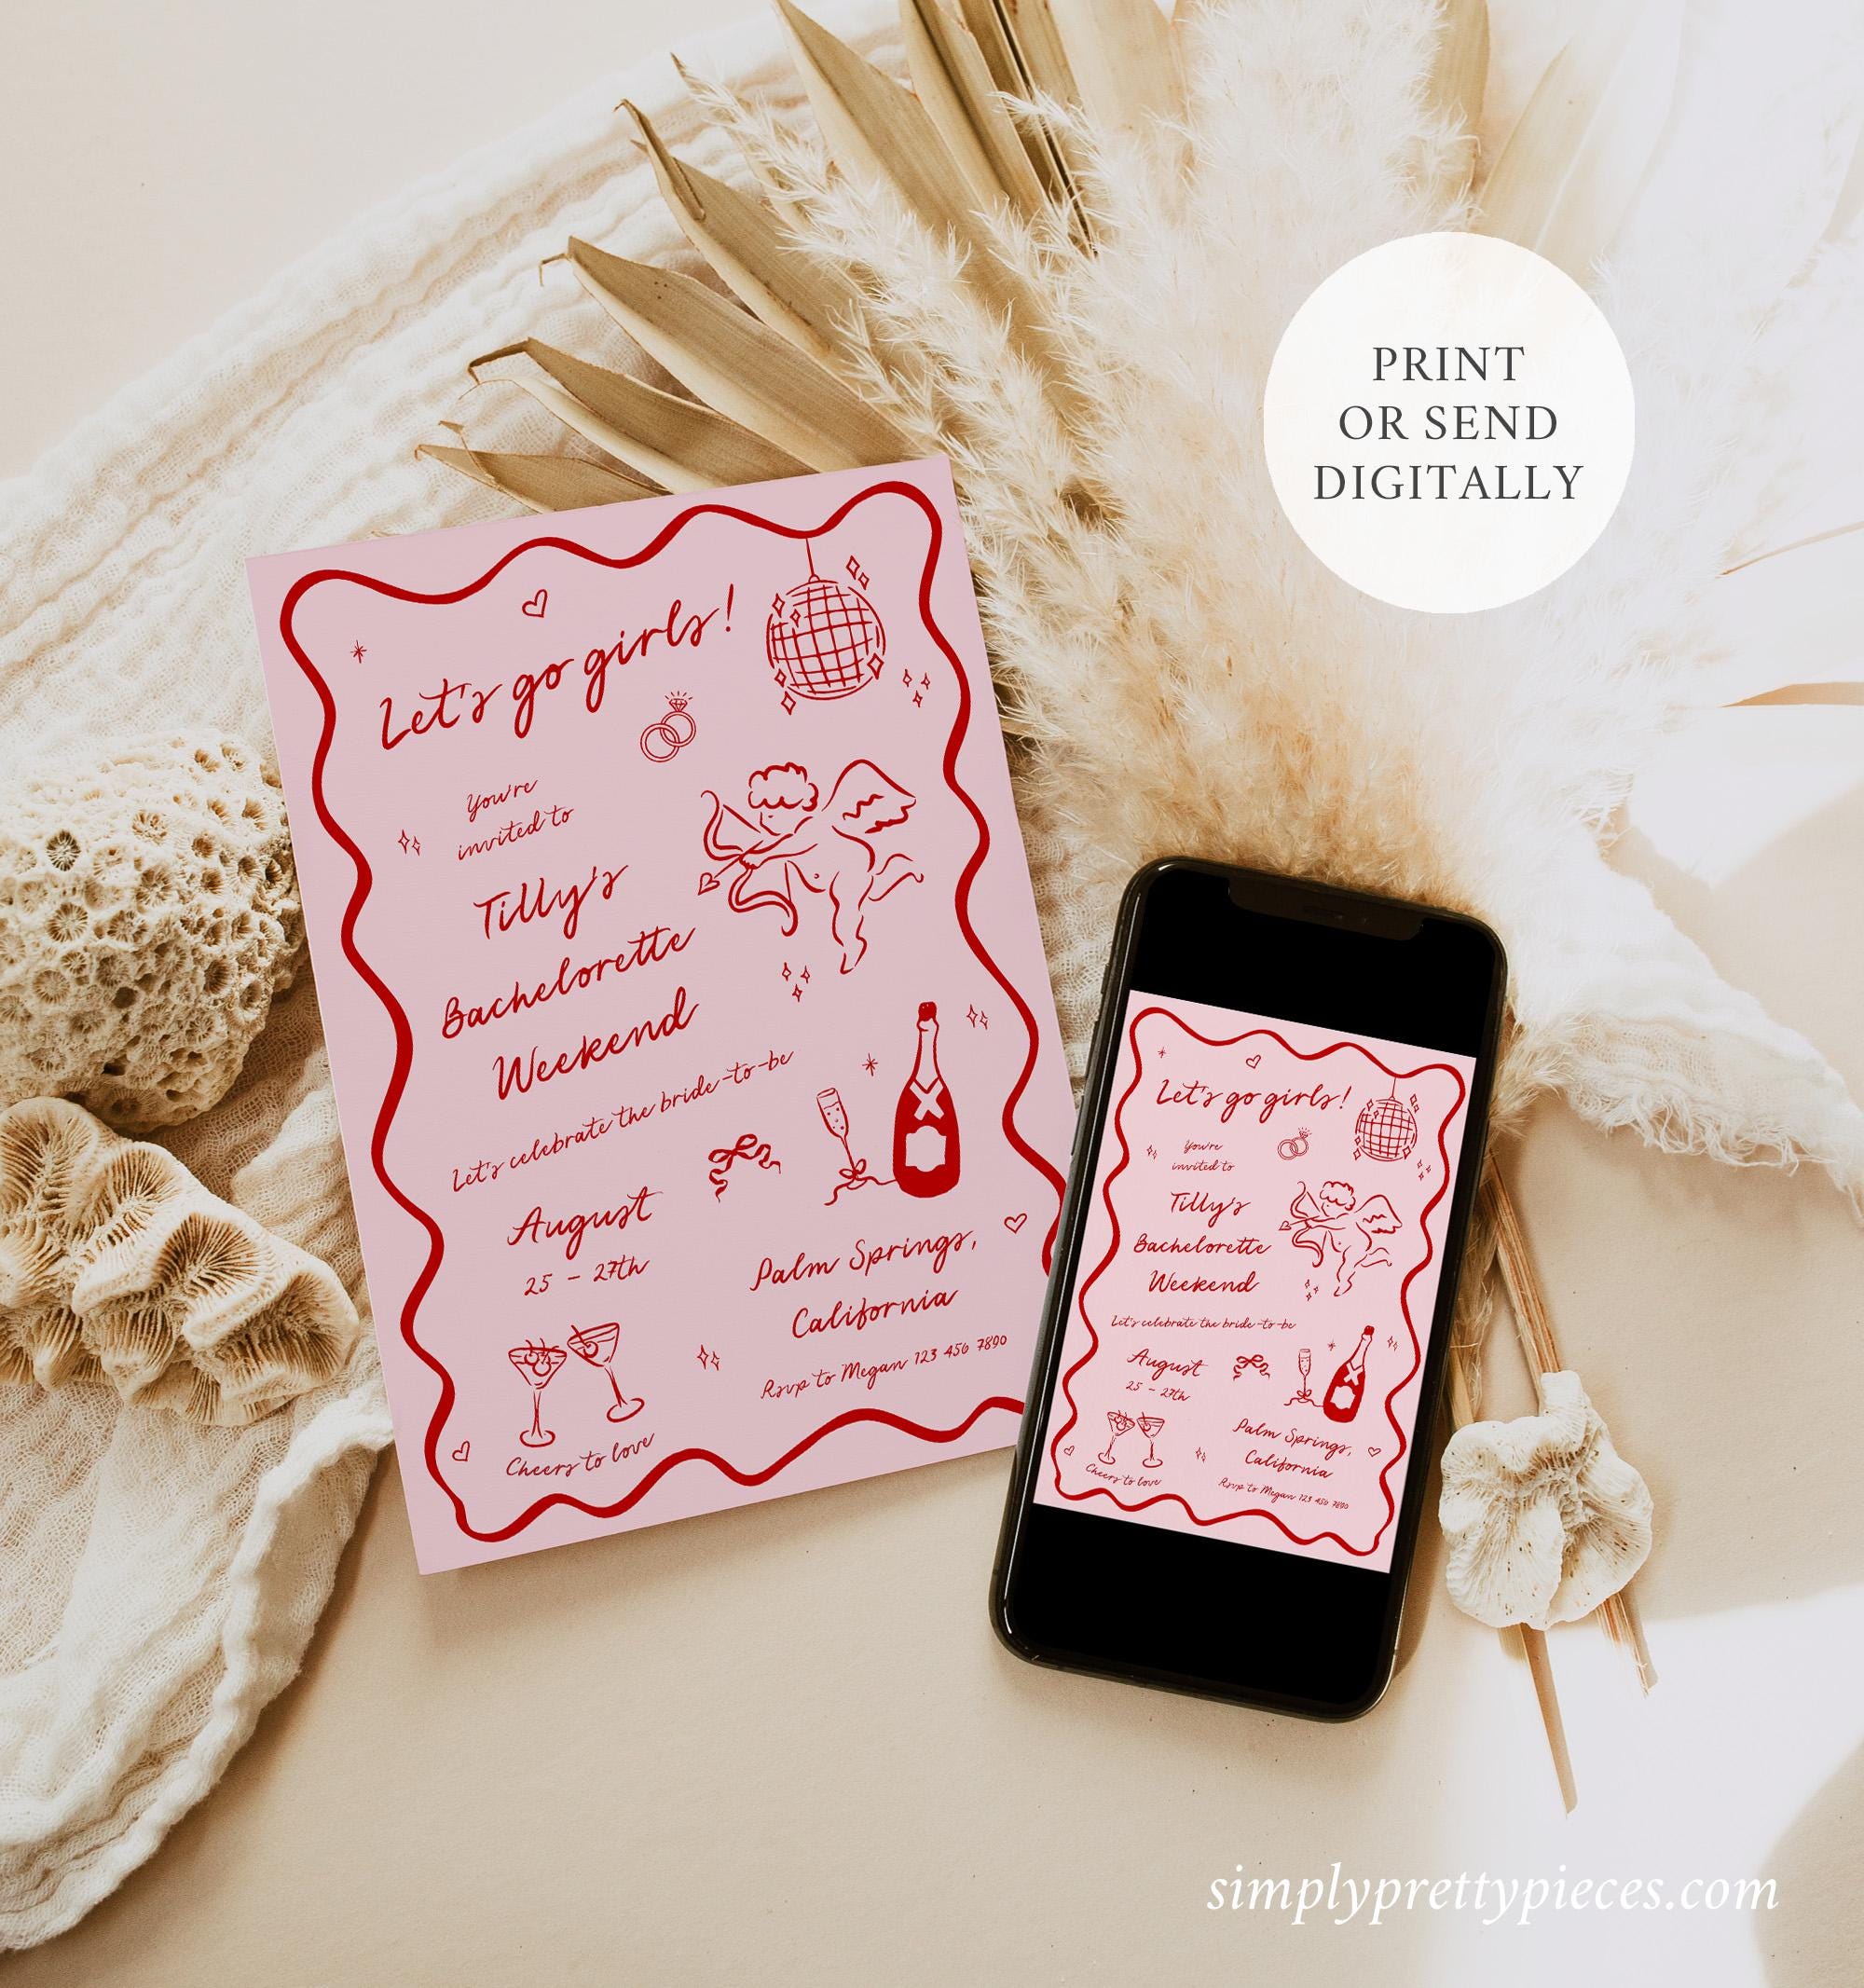 PRINT
OR SEND
DIGITALLY
Let's go girls!
You're
invited to
Tilly's
Bachelorette
Weekend
Let's celebrate the bride-to-be
August
25 - 27th
Palm Springs,
California
Rsvp to Megan 123 456 7890
Cheers to love
Let's go girls!
You're
invited to
Tilly's
Bachelorette
Weekend
Let's celebrate the bride-to-be
August
25 - 27th
Palm Springs,
California
Rsvp to Megan 123 456 7890
Cheers to love
simplyprettypieces.com